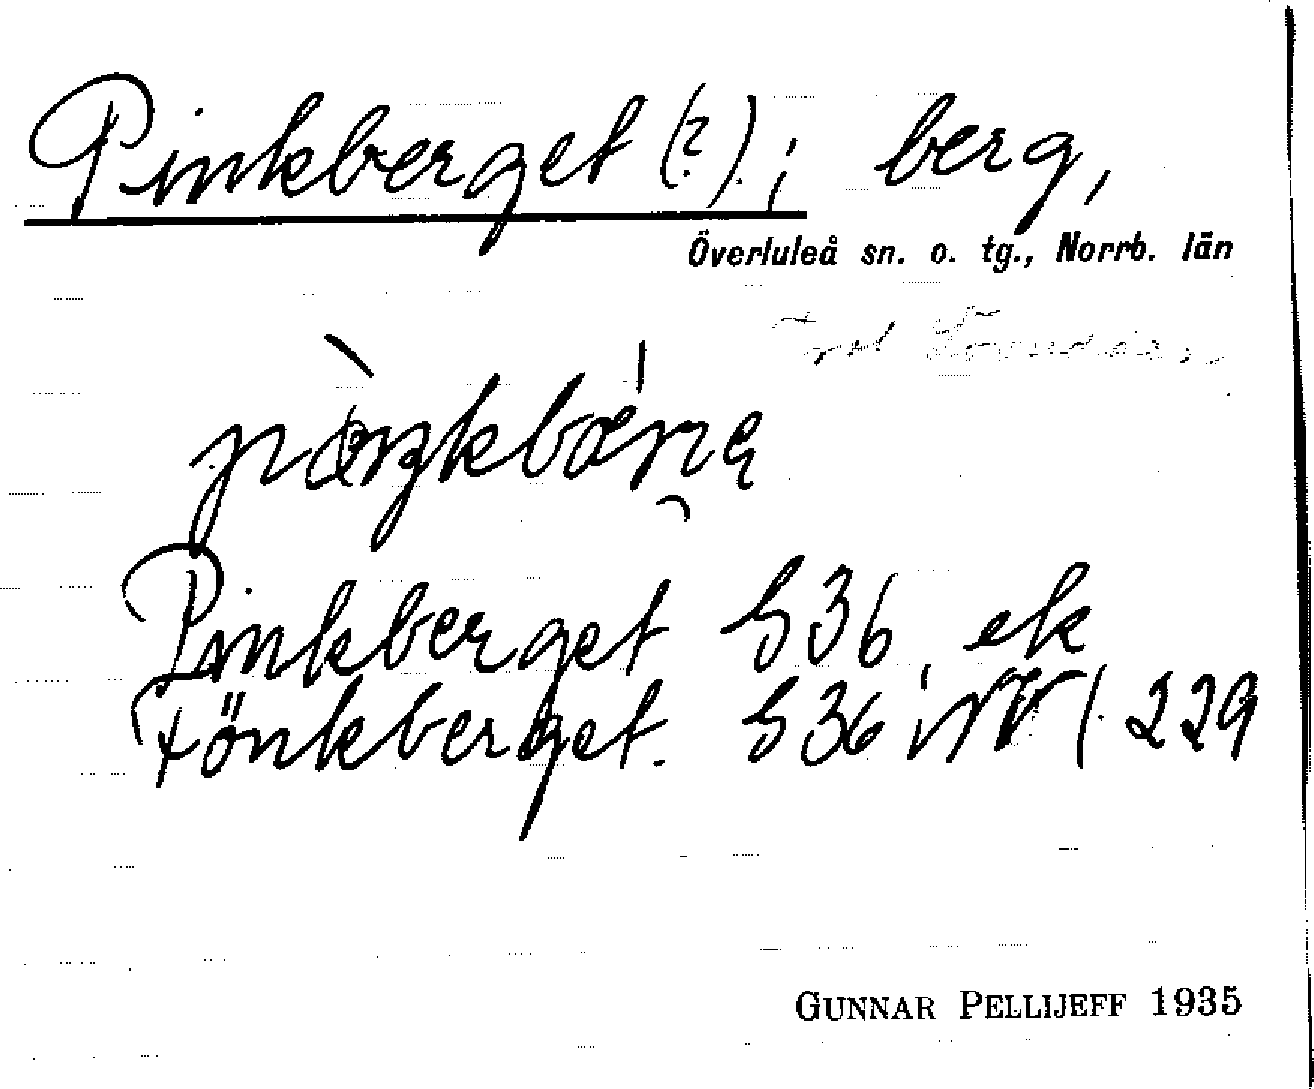 Pinkberget (?); berg,
Överluleå sn. o. tg., Norrb. län
Pinkberget S36 ek
tönkberget. S36 i NV 1. 229
GUNNAR PELLIJEFF 1935